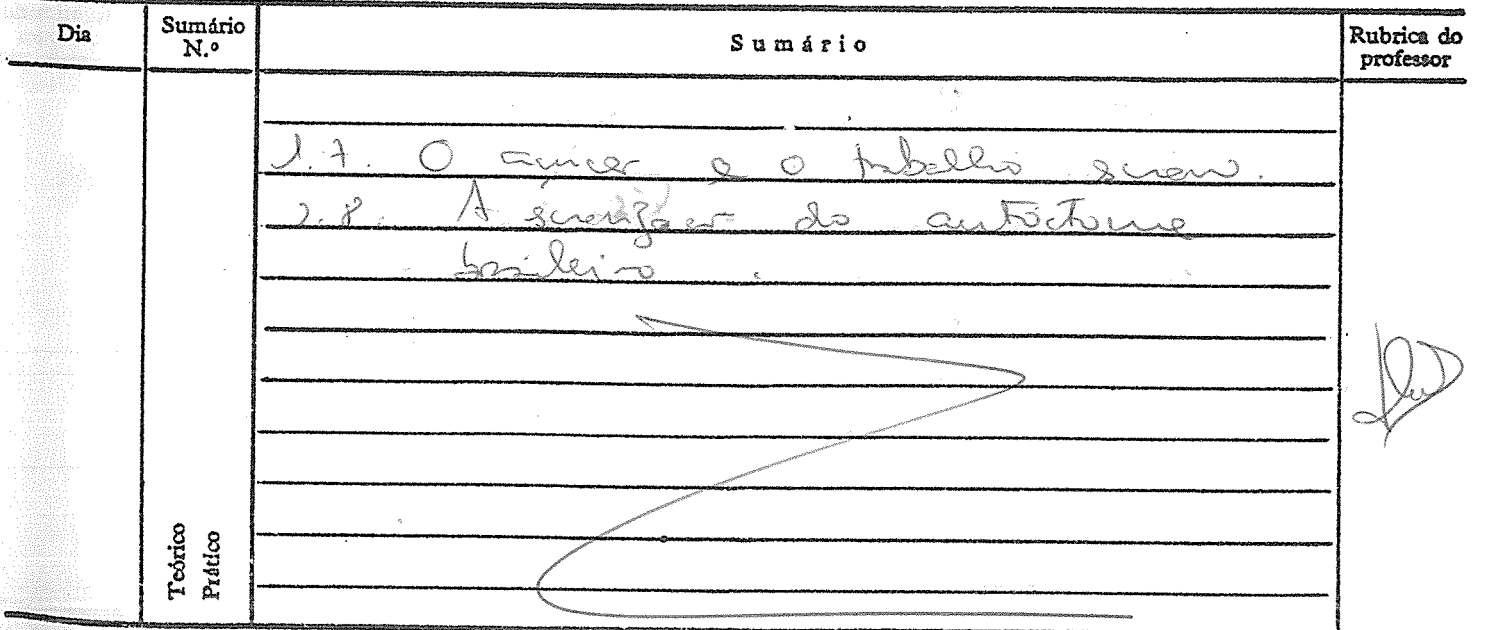 Dia
Sumário N.º
Sumário
Rubrica do professor
1.7. O açúcar e o trabalho escravo.
1.8. A escravização do autóctone
brasileiro.
Teórico
Prático